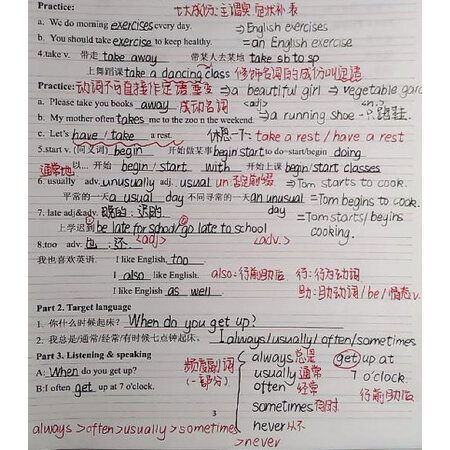 Practice: 七大成分: 主谓宾 定状补表
a. We do morning exercises every day. ⇒English exercises
b. You should take exercise to keep healthy. =an English exercise
4.take v. 带走 take away 带某人去某地 take sb to sp
上舞蹈课 take a dancing class 修饰名词的成分叫定语
Practice: 动词不可直接作定语 ⇒a beautiful girl ⇒vegetable garden
a. Please take you books away. 成动名词 <adj> <n.>
b. My mother often takes me to the zoo in the weekend. ⇒a running shoe
c. Let's have / take a rest. 休息一下: take a rest / have a rest
5.start v. (同义词) begin 开始做某事 begin start to do=start/begin doing
以... 开始 begin / start with 开始上课 begin/start classes
通常地
6. usually adv. unusually adj. usual un:否定前缀 ⇒Tom starts to cook.
平常的一天 a usual day 不同寻常的一天 an unusual day =Tom begins to cook.
7. late adj&adv. 晚的; 迟的 =Tom starts/begins cooking.
上学迟到 be late for school / go late to school
8.too adv. 也; 还 <adj> <adv.>
我也喜欢英语. I like English, too
I also like English. also: 行前助后 行: 行为动词
I like English as well 助: 助动词/be/情态v.
Part 2. Target language
1. 你什么时候起床? When do you get up?
2. 我总是/通常/经常/有时候七点钟起床. I always/usually/often/sometimes
Part 3. Listening & speaking always 总是 get up at
A: When do you get up? 频度副词 usually 通常 7 o'clock.
B:I often get up at 7 o'clock. (一部分) often 经常 行前助后
sometimes 有时
3
never 从不
always >often>usually >sometimes
>never